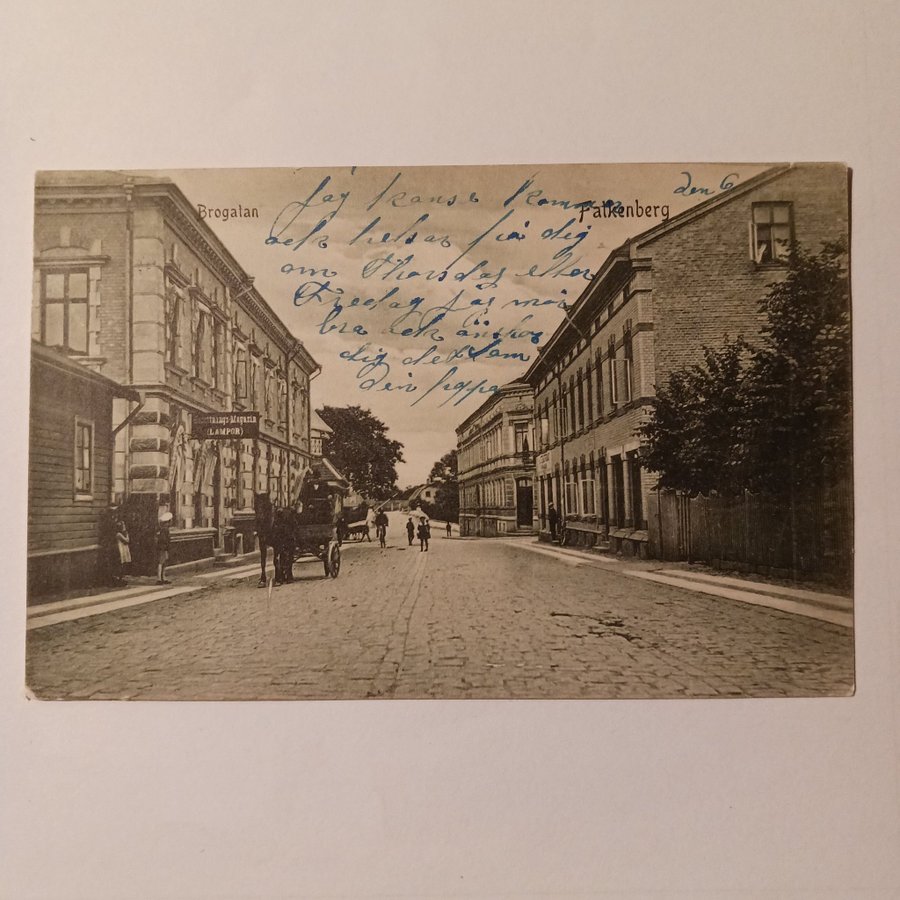 den 6
Brogatan
Falkenberg
Jag kanse kommer
ock helsar på dig
om Thorsdag eller
Fredag jag mår
bra ock önskar
dig detsam
din pappa
Magazin
(LAMPOR)